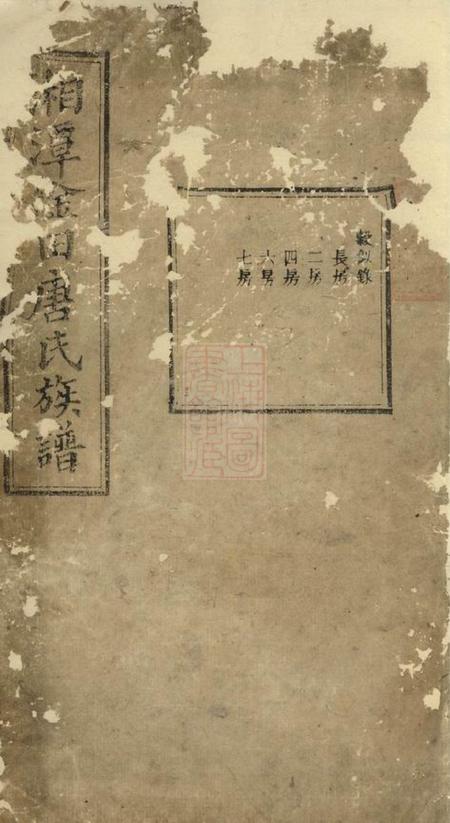 縠似錄
長房
二房
四房
六房
七房
湘潭金田唐氏族譜
上海圖書館藏